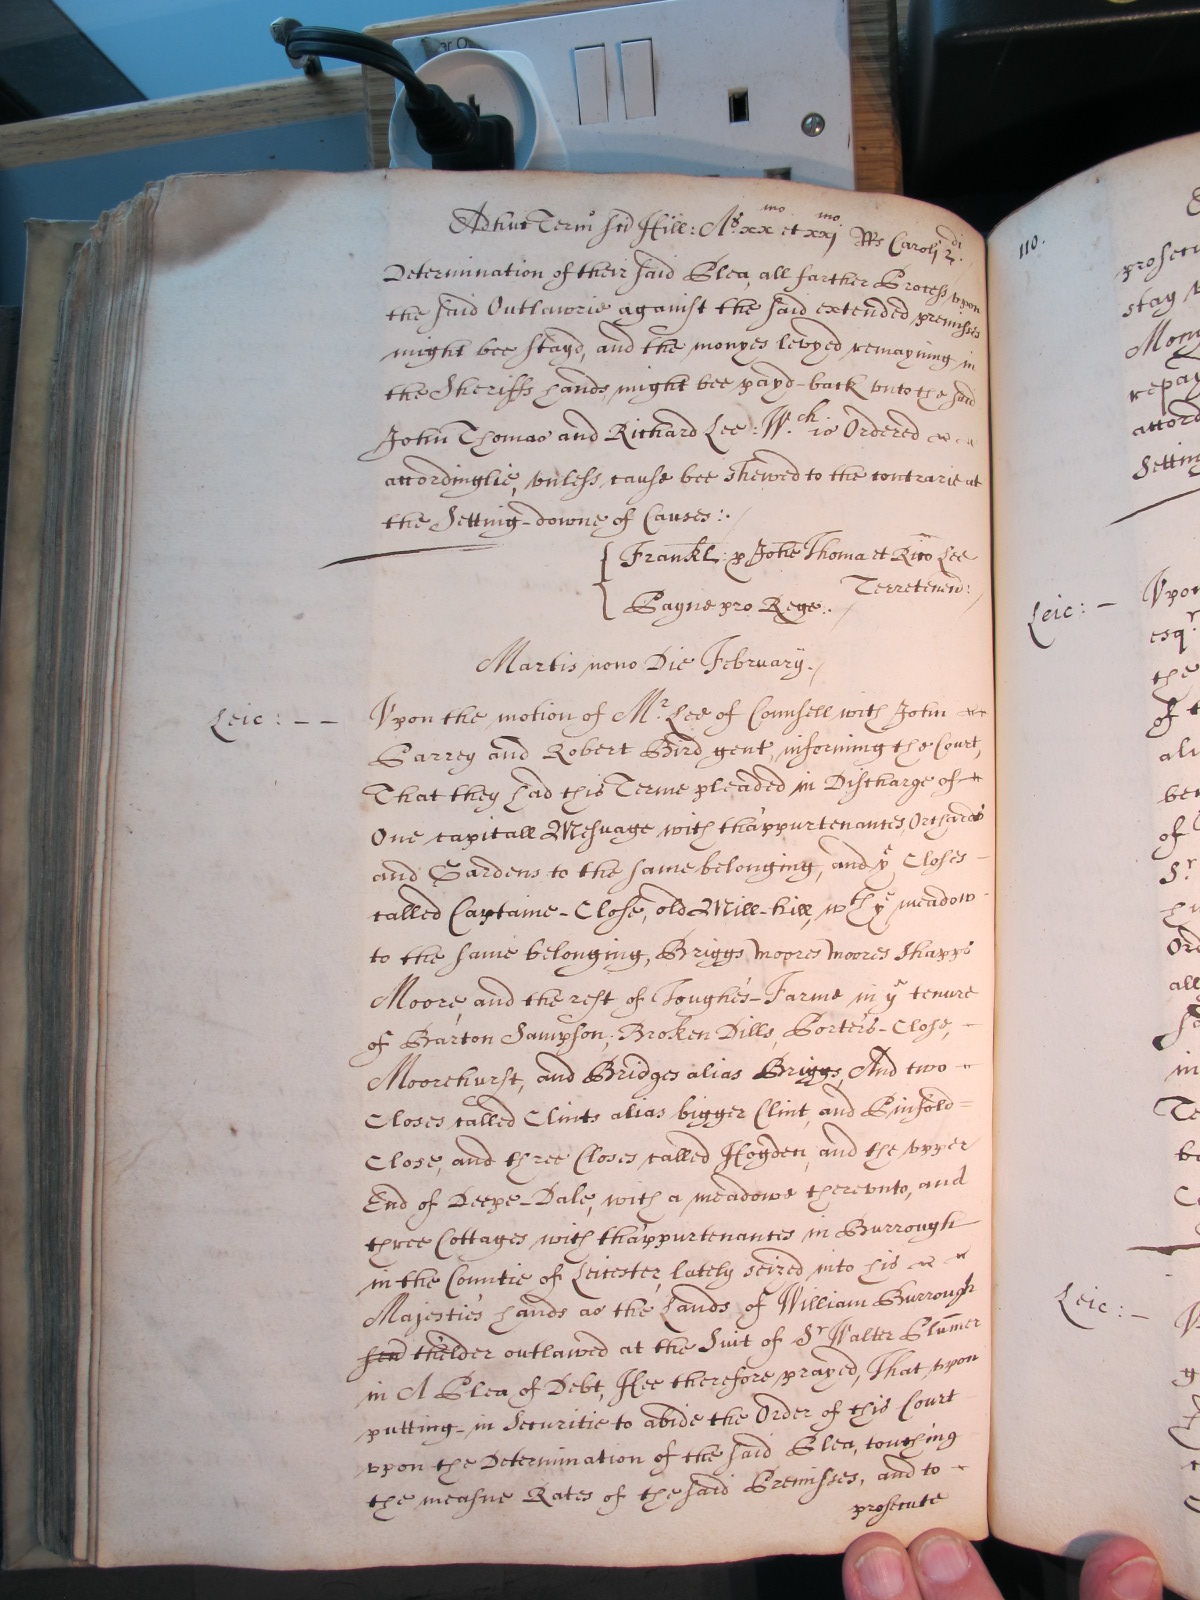 Adhuc Term Sci Hill: A° xx mo et xxj mo Rs Caroli 2 di.
Determination of their said Plea, all farther Process vpon
the said Outlawrie against the said extended premisses
might bee stayd, and the monyes levyed remayning in
the Sheriffs hands, might bee payd-back vnto the said
John Thomas and Richard Lee: Wch. is Ordered
accordinglie, vnless cause bee shewed to the contrarie at
the Setting-downe of Causes:.
Frankl: p Johe Thoma et Rico Lee
Terretenen:
Payne pro Rege.
Martis nono Die February.
Leic: - - Vpon the motion of Mr. Lee of Counsell with John
and Robert Bird gent, informing the Court,
That they had this Terme pleaded in Discharge of
One capitall Mesuage with thappurtenances, Orchards
and Gardens to the same belonging, and ye Closes
called Captaine-Close, old Mill-hill, wth ye meadow
to the same belonging, Briggs moores moores
Moore, and the rest of Toughes-Farme in ye tenure
of Barton Sampson, Broken Dills, Porters-Close,
Moorehurst, and Bridges alias Briggs, And two
Closes called Clints alias bigger Clint, and Pinfold=
Close, and three Closes called Hogden, and the vpper
End of Deepe-Dale, with a meadowe therevnto, and
three Cottages with thappurtenances in Burrough
in the Countie of Leicester, lately seized into his
Majesties hands as the Lands of William Burrough
thelder outlawed at the Suit of Sr Walter Plumer
in A Plea of Debt, Hee therefore prayed, That vpon
putting-in Securitie to abide the Order of this Court
vpon the Determination of the said Plea, touching
the measne Rates of the said Premisses, and to
prosecute
110.
prosecu
stay
repay
accord
Setting
Leic: - Vpon
esqr.
the
of t
ali
bei
of
Sr
Ord
all
in
Te
be
Leic: -